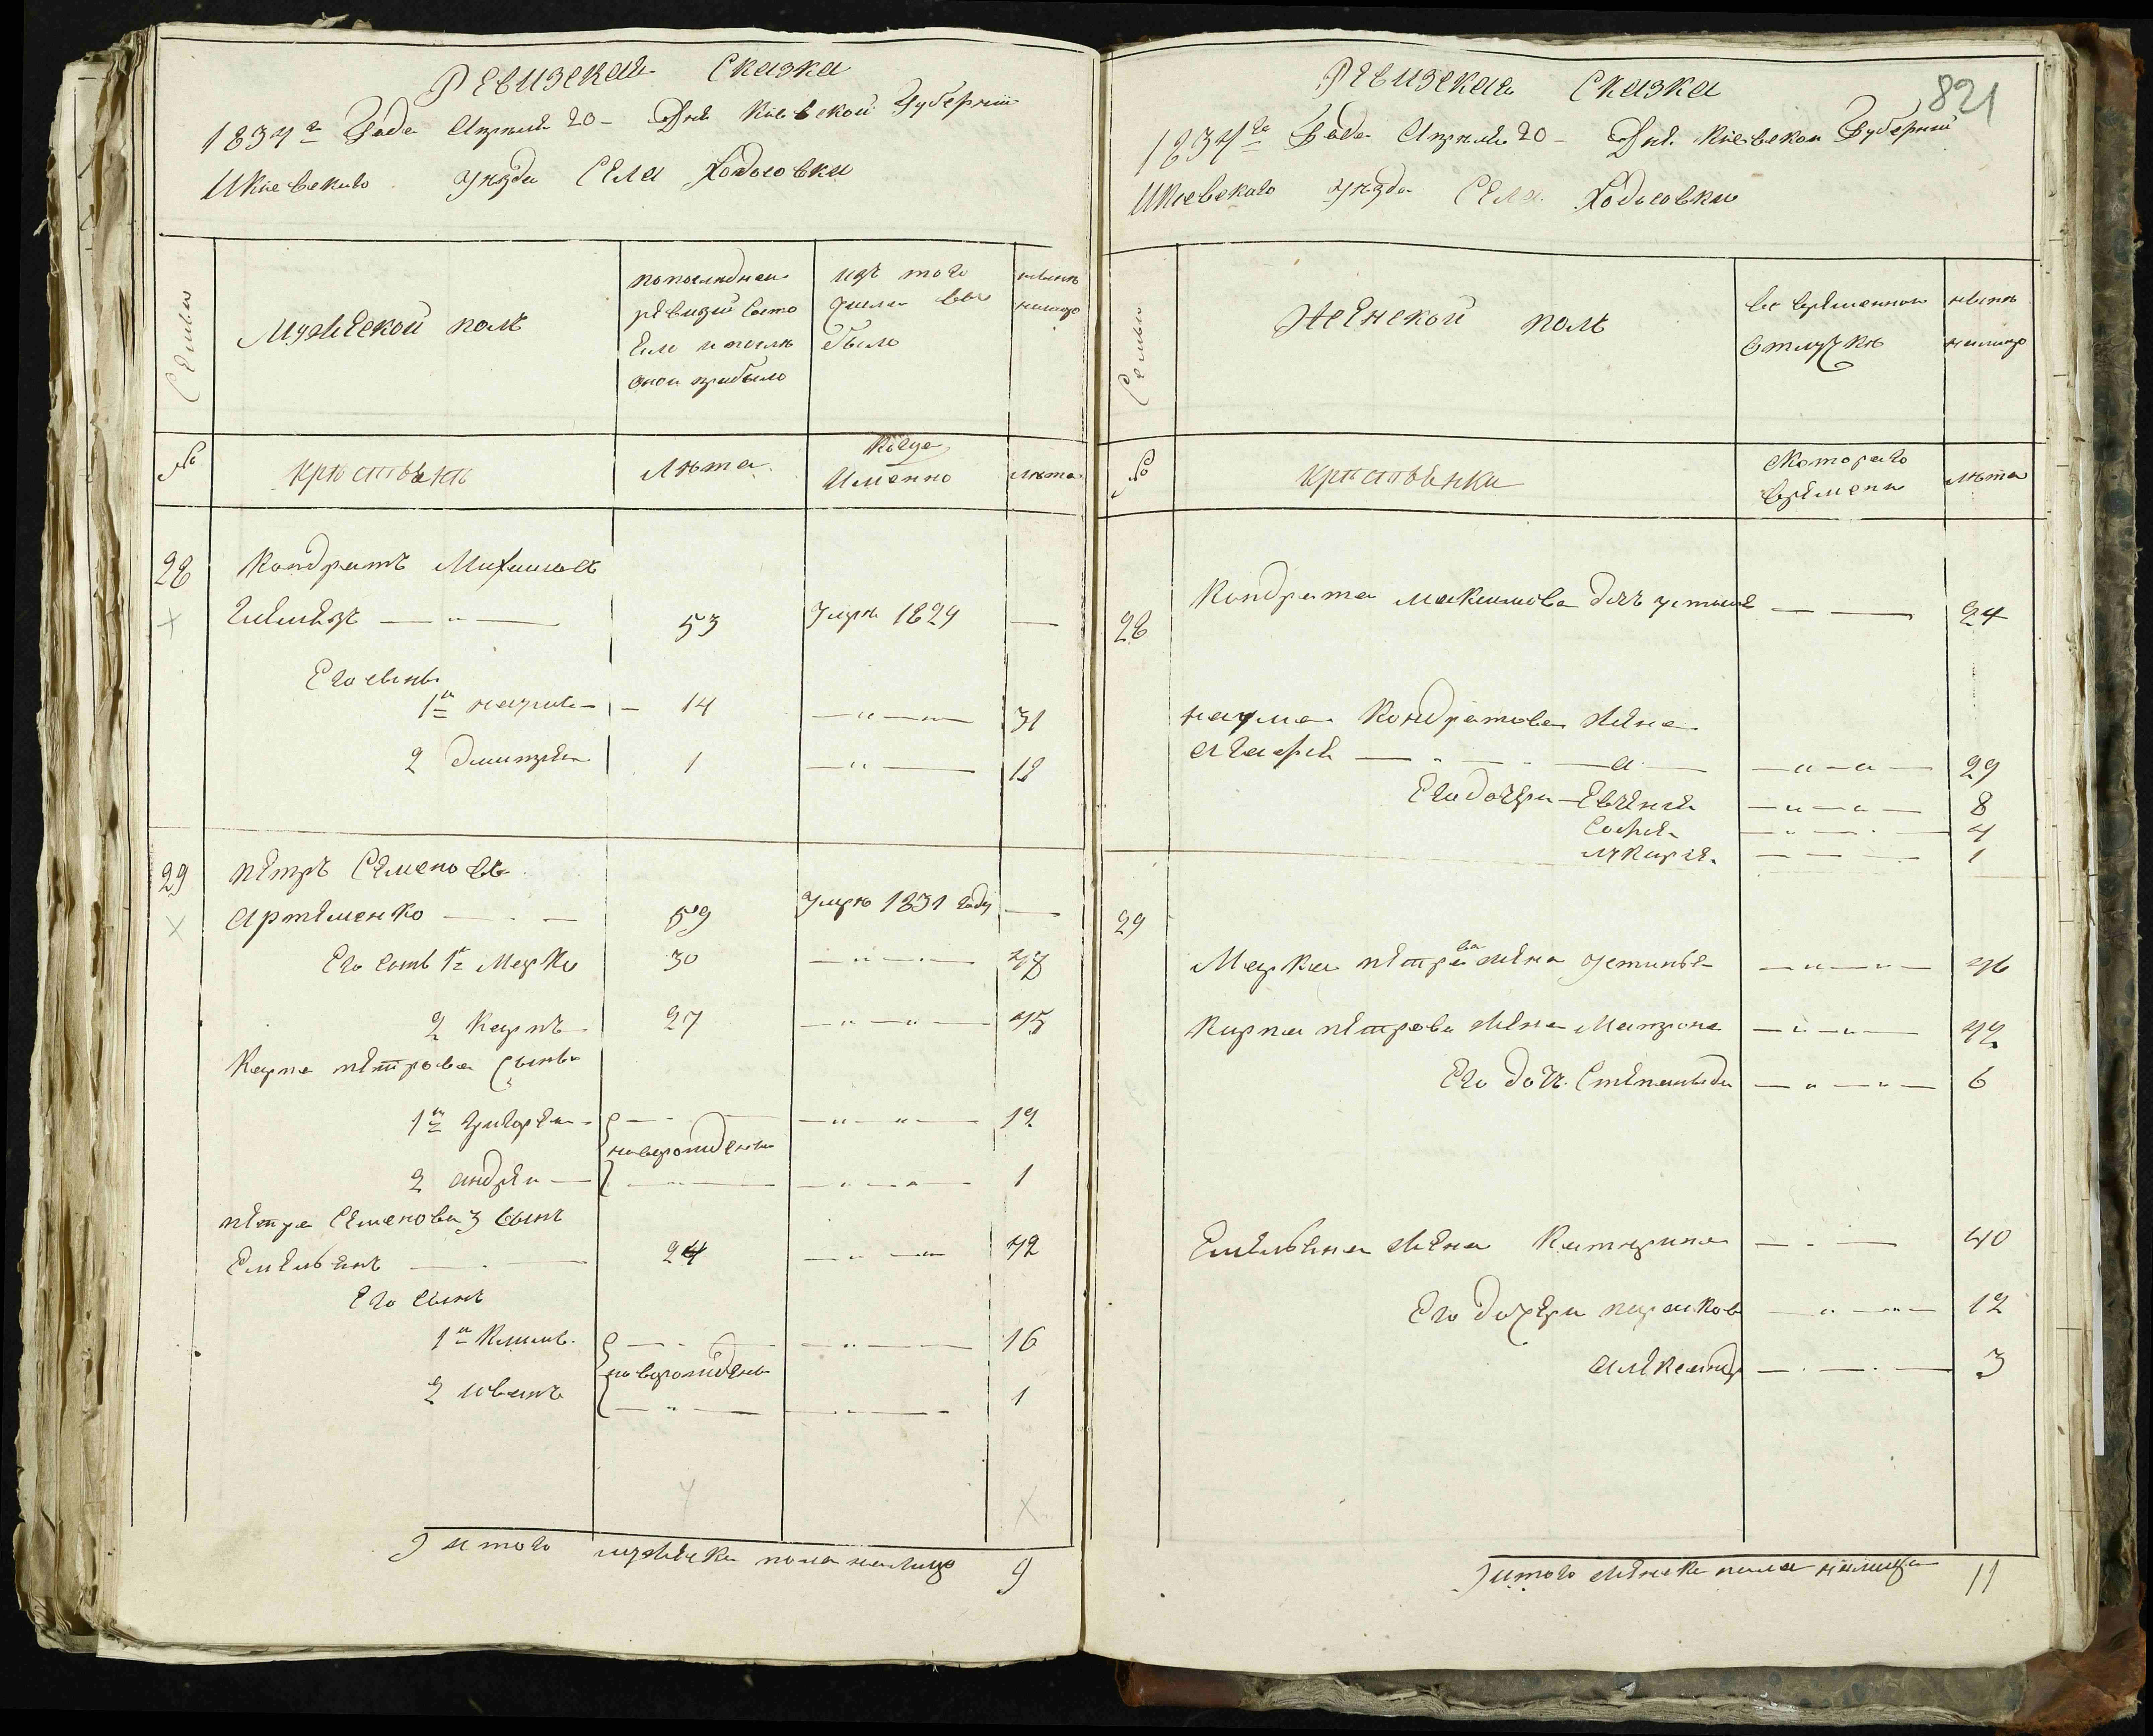 Ревизская Сказка
1834го Года Априля 20 Дня Киевской Губернии
И Киевскаго уезда Села Ходосовки
Семьи
Мужеской полъ
По последней
ревизии состо
яло и после
оной прибыло
Изъ того
числа вы
было
ныне
налицо
№
крестьяне
Лета
Когда
Именно
Лета
28
Кондратъ
53
умре 1829
Его сыны
1й Наумъ
14
31
2 Дмитрей
1
18
29
Петръ Семеновъ
Артеменко
59
умре 1831 году
Его сынъ 1й Марко
30
48
2 Карпъ
27
45
Карпа Петрова сыны
1й Григорей
новорожденны
12
2 Андрей
1
Петра Семенова 3 сынъ
Емельянъ
24
42
Его сынъ
1й Климъ
новорожденны
16
2 Иванъ
1
Итого мужеска пола налицо 9
821
Ревизская Сказка
1834го Года Априля 20 Дня Киевской Губернии
И Киевскаго уезда Села Ходосовки
Семьи
Женской полъ
Во временной
отлучке
ныне
налицо
№
крестьянки
Скотораго
времени
Лета
28
Кондрата дочъ
24
Наума Кондратова жена
Агафія
29
Его дочери Евгения
8
Софія
4
Лукирія
1
29
Марка Петрова жена Устинья
46
Карпа Петрова жена Матрона
42
Его дочъ Степанида
6
Емельяна жена Катерина
40
Его дочери
12
Александр
3
Итого женска пола налицо 11